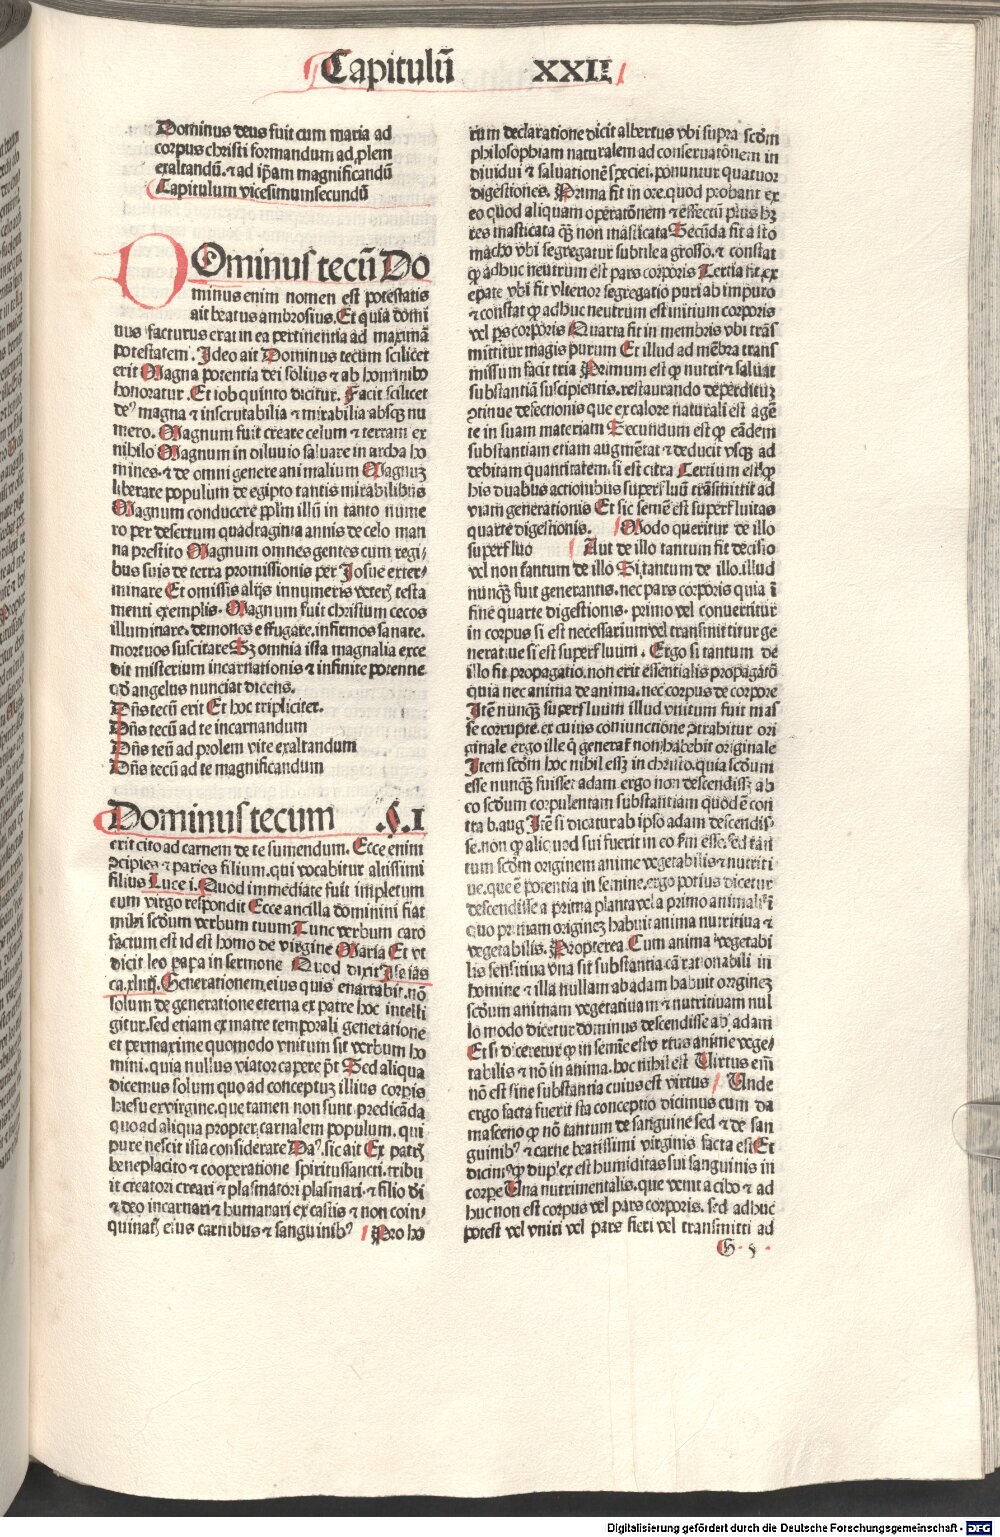 Capitulū XXII
Dominus deus fuit cum maria ad
corpus christi formandum ad ꝓlem
exaltandū. ⁊ ad ip̄am magnificandū
Capitulum vicesimumsecundū
DOminus tecū Do
minus enim nomen est potestatis
ait beatus ambrosius. Et quia domi
nus facturus erat in ea pertinentia ad maximā
potestatem. Ideo ait Dominus tecum scilicet
erit Magna potentia dei solius ⁊ ab hominibꝰ
honoratur. Et iob quinto dicitur. Facit scilicet
deꝰ magna ⁊ inscrutabilia ⁊ mirabilia absqꝫ nu
mero. Magnum fuit create celum ⁊ terram ex
nihilo Magnum in diluuio saluare in archa ho
mines. ⁊ de omni genere animalium Magnuꝫ
liberare populum de egipto tantis mirabilibus
Magnum conducere pplm illū in tanto nume
ro per desertum quadraginta annis de celo man
na prestito Magnum omnes gentes cum regi/
bus suis de terra promissionis per Josue exter/
minare Et omissis alijs innumeris veteꝝ testa
menti exemplis. Magnum fuit christum cecos
illuminare. demones effugare. infirmos sanare.
mortuos suscitare Sꝫ omnia ista magnalia exce
dit misterium incarnationis ⁊ infinite potentie
qd̄ angelus nunciat dicens.
Dn̄s tecū erit Et hoc tripliciter.
Dn̄s tecū ad te incarnandum
Dn̄s teū ad prolem vite exaltandum
Dn̄s tecū ad te magnificandum
Dominus tecum .§.I
erit cito ad carnem de te sumendum. Ecce enim
ꝯcipies ⁊ paries filium. qui vocabitur altissimi
filius Luce i. Quod immediate fuit impletum
cum virgo respondit Ecce ancilla dominini fiat
mihi scdum verbum tuum Tunc verbum caro
factum est id est homo de virgine Maria Et vt
dicit leo papa in sermone Quod dixit Isaias
ca. xliiij. Generationem eius quis enarrabit. nō
solum de generatione eterna ex patre hoc intelli
gitur. sed etiam ex matre temporali generatione
et permaxime quomodo vnitum sit verbum ho
mini. quia nullus viator capere pōt Sed aliqua
dicemus solum quo ad conceptuꝫ illius corpis
hiesu ex virgine. que tamen non sunt predicāda
quo ad aliqua propter carnalem populum. qui
pure nescit ista considerare Daꝰ. sic ait Ex patris
beneplacito ⁊ cooperatione spiritussancti. tribu
it creatori creari ⁊ plasmatori plasmari. ⁊ filio di
⁊ deo incarnari ⁊ humanari ex castis ⁊ non coin/
quinatis eius carnibus ⁊ sanguinibꝰ Pro ho
rum declaratione dicit albertus vbi supra scdm
philosophiam naturalem ad conseruatōnem in
diuidui ⁊ saluationē speciei. ponuntur quatuor
digestiones. Prima fit in ore. quod probant ex
eo quod aliquam operatōnem ⁊ effectū plus hꝫ
res masticata qꝫ non masticata Secūda fit a sto
macho vbi segregatur subtile a grosso. ⁊ constat
ꝙ adhuc neutrum est pars corporis Tertia fit ex
epate vbi fit vlterior segregatio puri ab impuro
⁊ constat ꝙ adhuc neutrum est initium corporis
vel ps corporis Quarta fit in membris vbi trās
mittitur magis purum Et illud ad mēbra trans
missum facit tria Primum est ꝙ nutrit ⁊ saluat
substantiā suscipientis. restaurando deperdituꝫ
ꝯtinue desectionis que ex calore naturali est agē
te in suam materiam Secundum est ꝙ eādem
substantiam etiam augmētat ⁊ deducit vsqꝫ ad
debitam quantitatem. si est citra Tertium est ꝙ
his duabus actionibus superfluū trāsmittit ad
viam generationis Et sic semē est superfluitas
quarte digestionis. Modo queritur de illo
superfluo Aut de illo tantum fit decisio
vel non tantum de illo Si tantum de illo. illud
nunqꝫ fuit generantis. nec pars corporis quia ī
fine quarte digestionis. primo vel conuertitur
in corpus si est necessarium vel transmittitur ge
neratiue si est superfluum. Ergo si tantum de
illo fit propagatio. non erit essentialis propagatō
quia nec anima de anima. nec corpus de corpore
Itē nunqꝫ superfluum illud vnitum fuit mas
se corrupte. ex cuius coniunctione ꝯtrabitur ori
ginale ergo ille q̇ generat̄ non habebit originale
Item scdm hoc nihil esset in christo. quia scdum
esse nunqꝫ fuisset adam ergo non descendisset ab
eo scdum corpulentam substantiam quod ē con
tra b. aug Itē si dicatur ab ipso adam descendis-
se. non ꝙ aliquod sui fuerit in eo fm esse. sed tan
tum scdm originem anime vegetabilis ⁊ nutriti
ue. que ē potentia in semine. ergo potius dicetur
descendisse a prima planta vel a primo animali ī
quo primam origineꝫ habuit anima nutritiua ⁊
vegetabilis. Propterea Cum anima vegetabi
lis sensitiua vna sit substantia cū rationabili in
homine ⁊ illa nullam ab adam habuit origineꝫ
scdum animam vegetatiuam ⁊ nutritiuam nul
lo modo dicetur dominus descendisse ab adam
Et si diceretur ꝙ in semīe est virtus anime vege/
tabilis ⁊ nō in anima. hoc nihil est Uirtus em̄
nō est sine substantia cuius est virtus Unde
ergo facta fuerit ista conceptio dicimus cum da
masceno ꝙ nō tantum de sanguine sed ⁊ de san
guinibꝰ ⁊ carne beatissimi virginis facta est Et
dicimꝰ ꝙ duplex est humiditas sui sanguinis in
corpe Una nutrimentalis. que venit a cibo ⁊ ad
huc non est corpus vel pars corporis. sed adhuc
potest vel vniri vel pars fieri vel transmitti ad
Digitalisierung gefördert durch die Deutsche Forschungsgemeinschaft - DFG